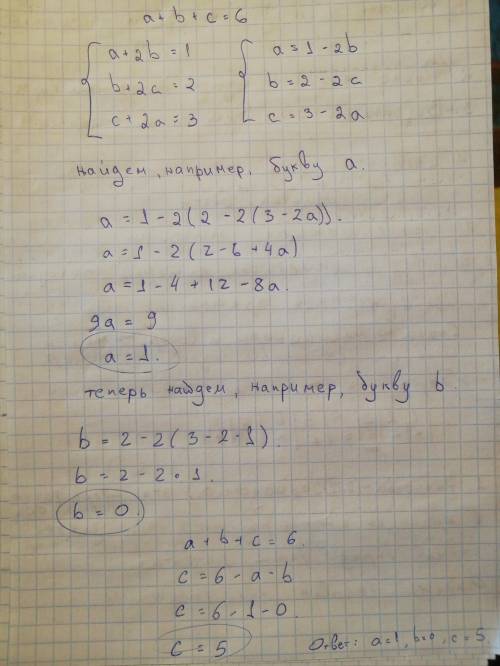 a + b + c = 6
a + 2b = 1 a = 1 - 2b
b + 2c = 2 b = 2 - 2c
c + 2a = 3 c = 3 - 2a
найдем, например, букву a.
a = 1 - 2(2 - 2(3 - 2a)).
a = 1 - 2(2 - 6 + 4a)
a = 1 - 4 + 12 - 8a.
9a = 9
a = 1.
теперь найдем, например, букву b
b = 2 - 2(3 - 2·1).
b = 2 - 2·1.
b = 0.
a + b + c = 6.
c = 6 - a - b
c = 6 - 1 - 0.
c = 5 Ответ: a=1, b=0, c=5.